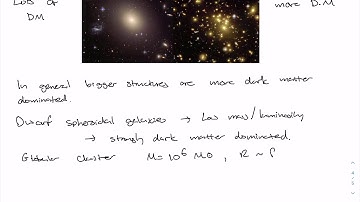 Lots of
DM
more D.M
In general bigger structures are more dark matter
dominated.
Dwarf spheroidal galaxies → Low mass/luminosity
→ strongly dark matter dominated.
Globular cluster M = 10⁶ M⊙ , R ~